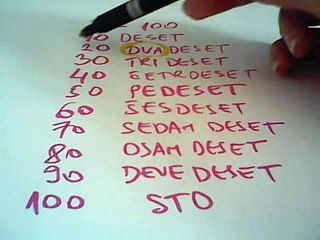 100
10 DESET
20 DVADESET
30 TRI DESET
40 ČETRDESET
50 PEDESET
60 ŠESDESET
70 SEDAM DESET
80 OSAM DESET
90 DEVE DESET
100 STO